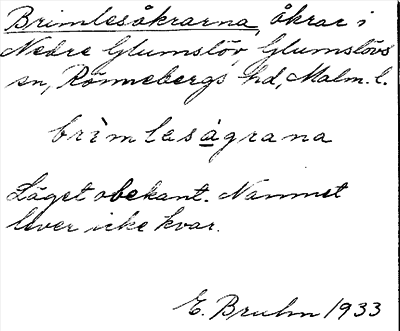 Brimlesåkrarna, åkrar i
Nedre Glumslöv, Glumslövs
sn, Rönnebergs hd, Malm. l.
brìmlesågrana
Läget obekant. Namnet
lever icke kvar.
E. Bruhn 1933